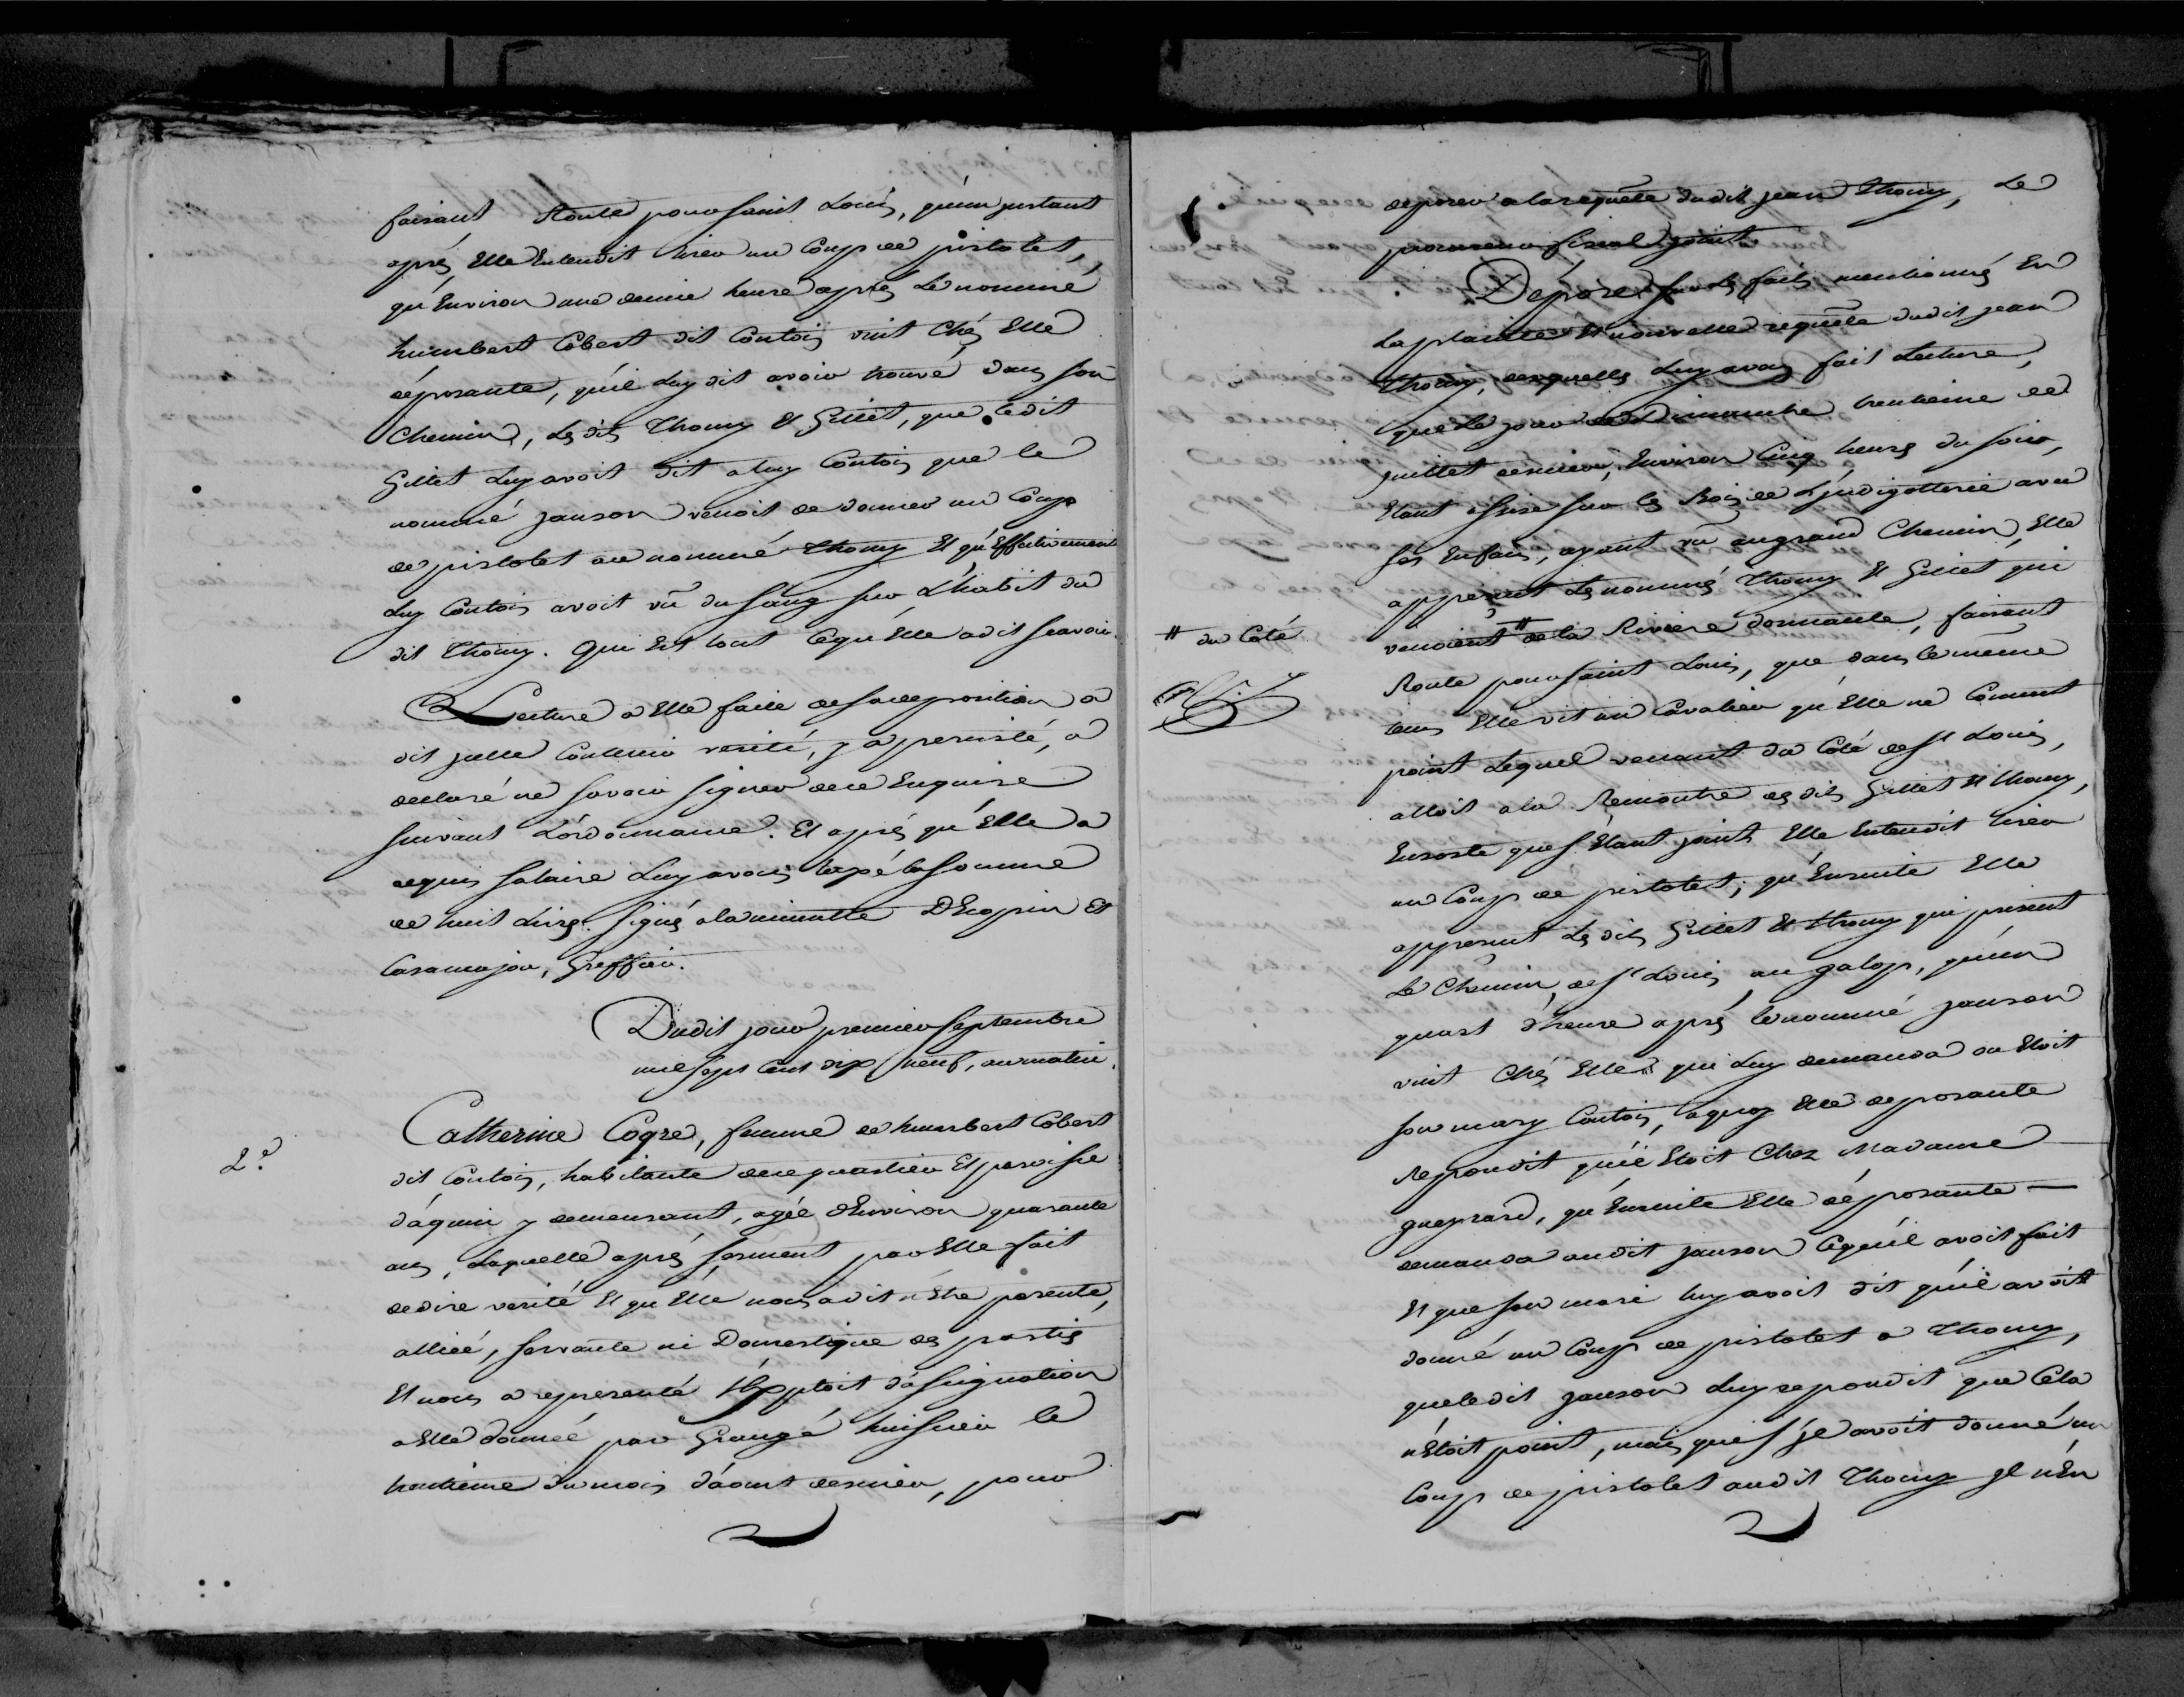 faisant Route pour Saint Louis, qu'un jnstant
aprés Elle Entendit tirer un Coup de pistolet,
qu'Environ une demie heure aprés Le nommé
humbert Cobert dit Contois vint Chés Elle
déposante, qu'il Luy dit avoir trouvé dans son
Chemin, Les dits Thomy Et Gillet, que Ledit
Gillet Luy avoit dit a luy Contois que le
nommé Janson venoit de donner un Coup
de pistolet au nommé Thomy Et qu'Effectivement
Luy Contois avoit vû du Sang sur L'habit du
dit Thomy. Qui Est tout Cequ'Elle a dit scavoir.
Lecture a Elle faite de sa deposition a
dit jcelle Contenir verité, y a persisté, a
declaré ne savoir signer de ce Enquise
suivant L'ordonnance. Et aprés qu'Elle a
requis salaire Luy avons taxé la somme
de huit Livres. Signé a la minutte
Casamajor, Greffier.
Dudit jour premier Septembre
mil sept Cent dix neuf, au matin.
2.e
Catherine Cogre, femme de humbert Cobert
dit Contois, habitante de ce quartier Et paroisse
d'aquin y demeurant, agée d'Environ quarante
ans, Laquelle aprés serment par Elle fait
de dire verité Et qu'Elle nous a dit n'être parente,
alliée, servante ni Domestique des partis
Et nous a representé L'Exploit d'assignation
a Elle donnée par Grangé huissier le
trentieme du mois d'aout dernier, pour
deposer a la requête dudit jean Thomy, Le
procureur fiscal joint.
Dépose sur les faits mentionnés En
La plainte Et nouvelle requête dudit jean
Thomy, desquelles Luy avons fait Lecture,
que Le jour de Dimanche trentieme de
juillet dernier, Environ Cinq heures du soir,
Etant assise sur les Bois de L'jndigotterie avec
ses Enfans, ayant vû au grand Chemin, Elle
apperçeut Les nommés Thomy Et Gillet qui
# du Coté
venoient # de la Riviere dormante, faisant
Route pour Saint Louis, que dans le même
tems Elle vit un Cavalier qu'Elle ne Connut
point Lequel venant du Coté de St Louis,
alloit a la Rencontre des dits Gillet Et Thomy,
Ensorte que s'Etant joints Elle Entendit tirer
un Coup de pistolet; qu'Ensuite Elle
apperçeut Les dits Gillet Et Thomy qui prirent
Le Chemin de St Louis au galop, qu'un
quart d'heure aprés le nommé Janson
vint Chés Elle qui Luy demanda ou Etoit
son mary Contois, a quoy Elle deposante
Repondit qu'il Etoit Chez Madame
gueprard, qu'Ensuite Elle déposante
demanda audit Janson Cequ'il avoit fait
Et que son mari luy avoit dit qu'il avoit
donné un Coup de pistolet a Thomy,
que ledit Janson Luy repondit que Cela
n'Etoit point, mais que s'jl avoit donné un
Coup de pistolet audit Thomy jl n'En